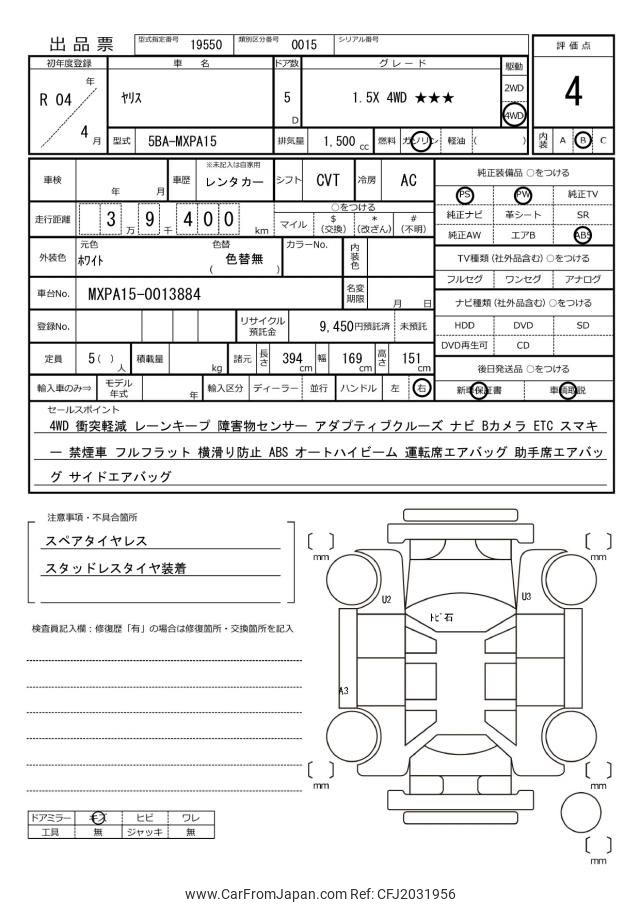 出品票 型式指定番号 19550 類別区分番号 0015 シリアル番号
評価点
4
内装 A B C
初年度登録 車名 ドア数 グレード 駆動
R 04 年 4 月 ヤリス 5 D 1.5X 4WD ★★★ 2WD 4WD
型式 5BA-MXPA15 排気量 1,500 cc 燃料 ガソリン 軽油 ( )
車検 年 月 車歴 ※未記入は自家用 レンタカー シフト CVT 冷房 AC
走行距離 3 万 9 千 4 0 0 km ○をつける
マイル $ (交換) * (改ざん) # (不明)
外装色 元色 ホワイト 色替 ( 色替無 ) カラーNo. 内装色
車台No. MXPA15-0013884 名変期限 月 日
登録No. リサイクル預託金 9,450円預託済 未預託
定員 5 ( ) 人 積載量 kg 諸元 長さ 394 cm 幅 169 cm 高さ 151 cm
輸入車のみ⇒ モデル年式 年 輸入区分 ディーラー 並行 ハンドル 左 右
純正装備品 ○をつける
PS PW 純正TV
純正ナビ 革シート SR
純正AW エアB ABS
TV種類 (社外品含む) ○をつける
フルセグ ワンセグ アナログ
ナビ種類 (社外品含む) ○をつける
HDD DVD SD
DVD再生可 CD
後日発送品 ○をつける
新車保証書 車輌取説
セールスポイント
4WD 衝突軽減 レーンキープ 障害物センサー アダプティブクルーズ ナビ Bカメラ ETC スマキ
ー 禁煙車 フルフラット 横滑り防止 ABS オートハイビーム 運転席エアバッグ 助手席エアバッ
グ サイドエアバッグ
注意事項・不具合箇所
スペアタイヤレス
スタッドレスタイヤ装着
検査員記入欄：修復歴「有」の場合は修復箇所・交換箇所を記入
ドアミラー キズ ヒビ ワレ
工具 無 ジャッキ 無
mm mm
U2 U3
トビ石
A3
mm mm
mm
www.CarFromJapan.com Ref: CFJ2031956